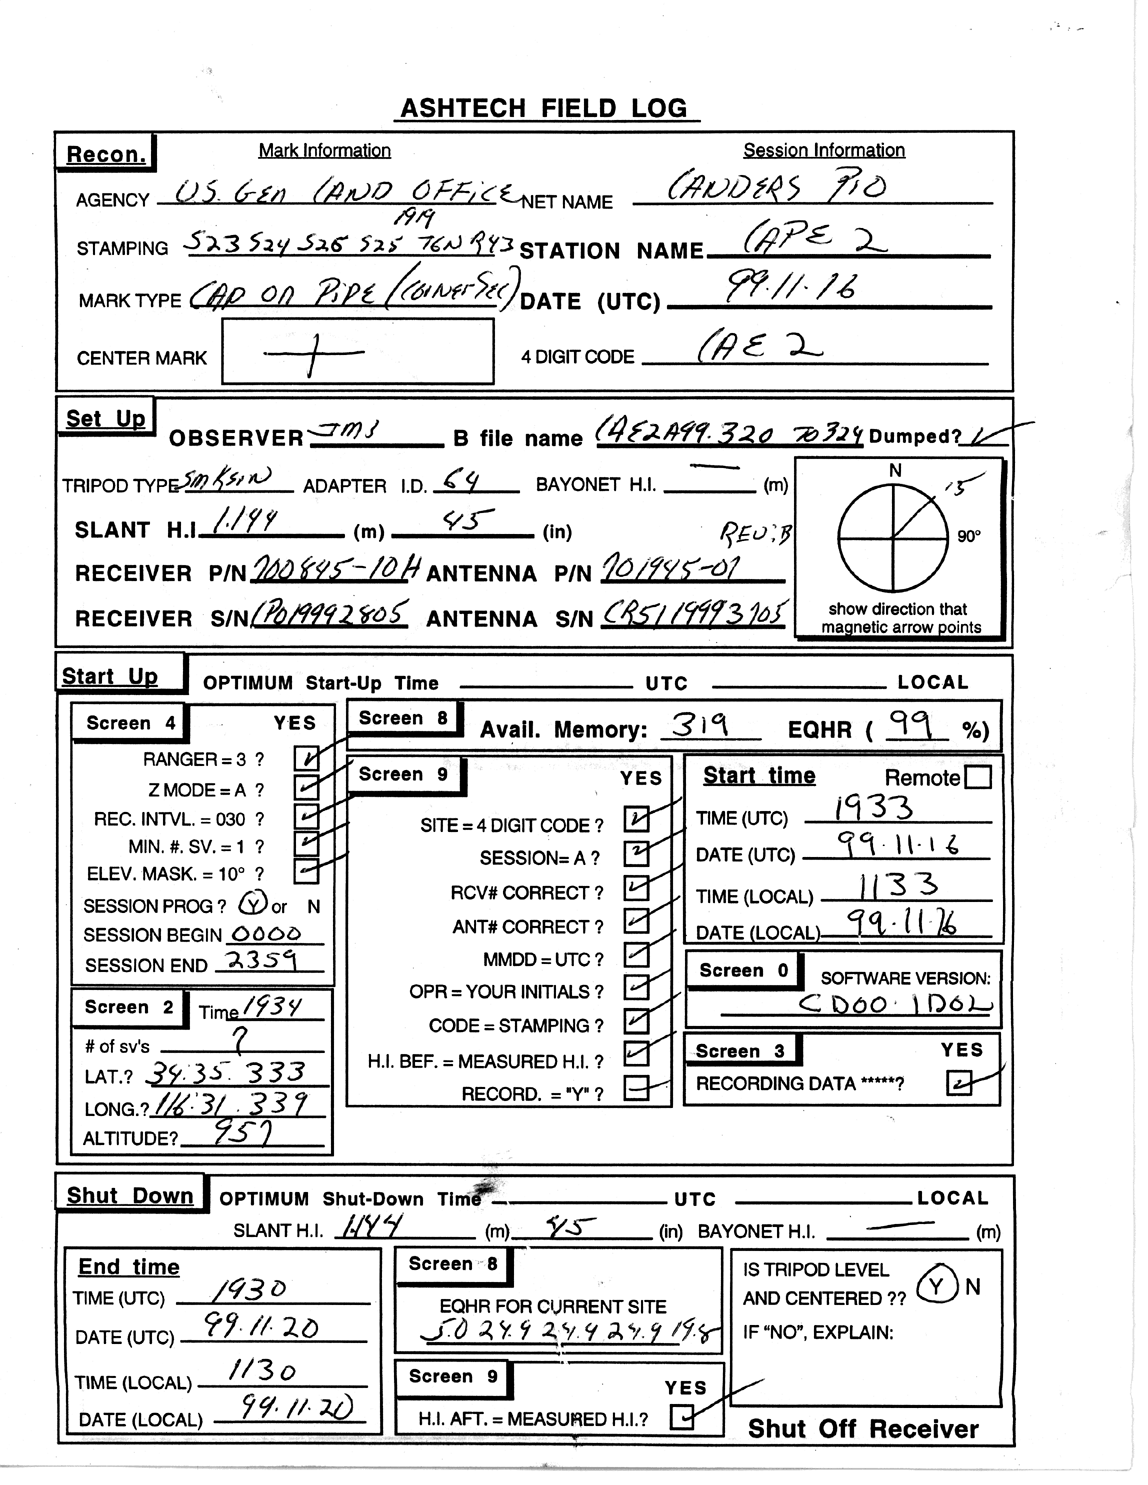 ASHTECH FIELD LOG
Recon. Mark Information Session Information
AGENCY U.S. GEN LAND OFFICE NET NAME LANDERS PIO
1919
STAMPING S23 S24 S26 S25 T6N R43 STATION NAME CAPE 2
MARK TYPE CAP ON PIPE (CORNER SEC) DATE (UTC) 99.11.16
CENTER MARK 4 DIGIT CODE CAE2
Set Up OBSERVER B file name CAE2A99.320 TO 324 Dumped?
TRIPOD TYPE ADAPTER I.D. 64 BAYONET H.I. — (m) N 15
SLANT H.I. 1.144 (m) 45 (in) REV:B 90°
RECEIVER P/N 700845-10H ANTENNA P/N 701945-01
RECEIVER S/N LP019992805 ANTENNA S/N CR5119993705
show direction that
magnetic arrow points
Start Up OPTIMUM Start-Up Time UTC LOCAL
Screen 4 YES
RANGER = 3 ?
Z MODE = A ?
REC. INTVL. = 030 ?
MIN. #. SV. = 1 ?
ELEV. MASK. = 10° ?
SESSION PROG ? Y or N
SESSION BEGIN 0000
SESSION END 2359
Screen 2 Time 1934
# of sv's 7
LAT.? 34.35.333
LONG.? 116.31.339
ALTITUDE? 957
Screen 8 Avail. Memory: 319 EQHR ( 99 %)
Screen 9 YES
SITE = 4 DIGIT CODE ?
SESSION= A ?
RCV# CORRECT ?
ANT# CORRECT ?
MMDD = UTC ?
OPR = YOUR INITIALS ?
CODE = STAMPING ?
H.I. BEF. = MEASURED H.I. ?
RECORD. = "Y" ?
Start time Remote
TIME (UTC) 1933
DATE (UTC) 99.11.16
TIME (LOCAL) 1133
DATE (LOCAL) 99.11.16
Screen 0 SOFTWARE VERSION:
CD00.1D02
Screen 3 YES
RECORDING DATA *****?
Shut Down OPTIMUM Shut-Down Time UTC LOCAL
SLANT H.I. 1.144 (m) 45 (in) BAYONET H.I. — (m)
End time
TIME (UTC) 1930
DATE (UTC) 99.11.20
TIME (LOCAL) 1130
DATE (LOCAL) 99.11.20
Screen 8
EQHR FOR CURRENT SITE
5.0 24.9 24.9 24.9 19.8
Screen 9 YES
H.I. AFT. = MEASURED H.I.?
IS TRIPOD LEVEL
AND CENTERED ?? Y N
IF "NO", EXPLAIN:
Shut Off Receiver